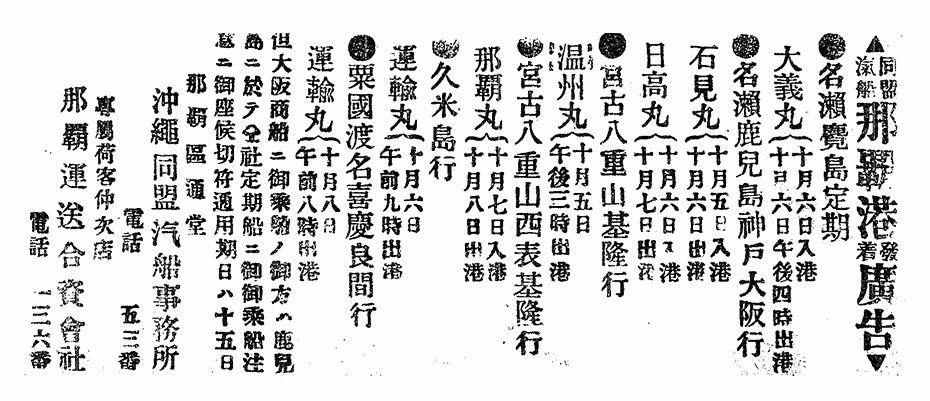 ▲同盟汽船那覇港発着廣告▼
●名瀬鹿島定期
大義丸(十月六日入港
十月六日午後四時出港
●名瀬鹿兒島神戸大阪行
石見丸(十月五日入港
十月六日出港
日高丸(十月六日入港
十月七日出港
●宮古八重山基隆行
温州丸(十月五日
午後三時出港
●宮古八重山西表基隆行
那覇丸(十月七日入港
十月八日出港
●久米島行
運輸丸(十月六日
午前九時出港
●粟國渡名喜慶良間行
運輸丸(十月八日
午前八時出港
但大阪商船ニ御乗船ノ御方ハ鹿兒
島ニ於テ仝社定期船ニ御御乗船注
意ニ御座候切符通用期日ハ十五日
那覇區通堂
沖繩同盟汽船事務所
電話 五三番
專屬荷客仲次店
那覇運送合資會社
電話 一三六番